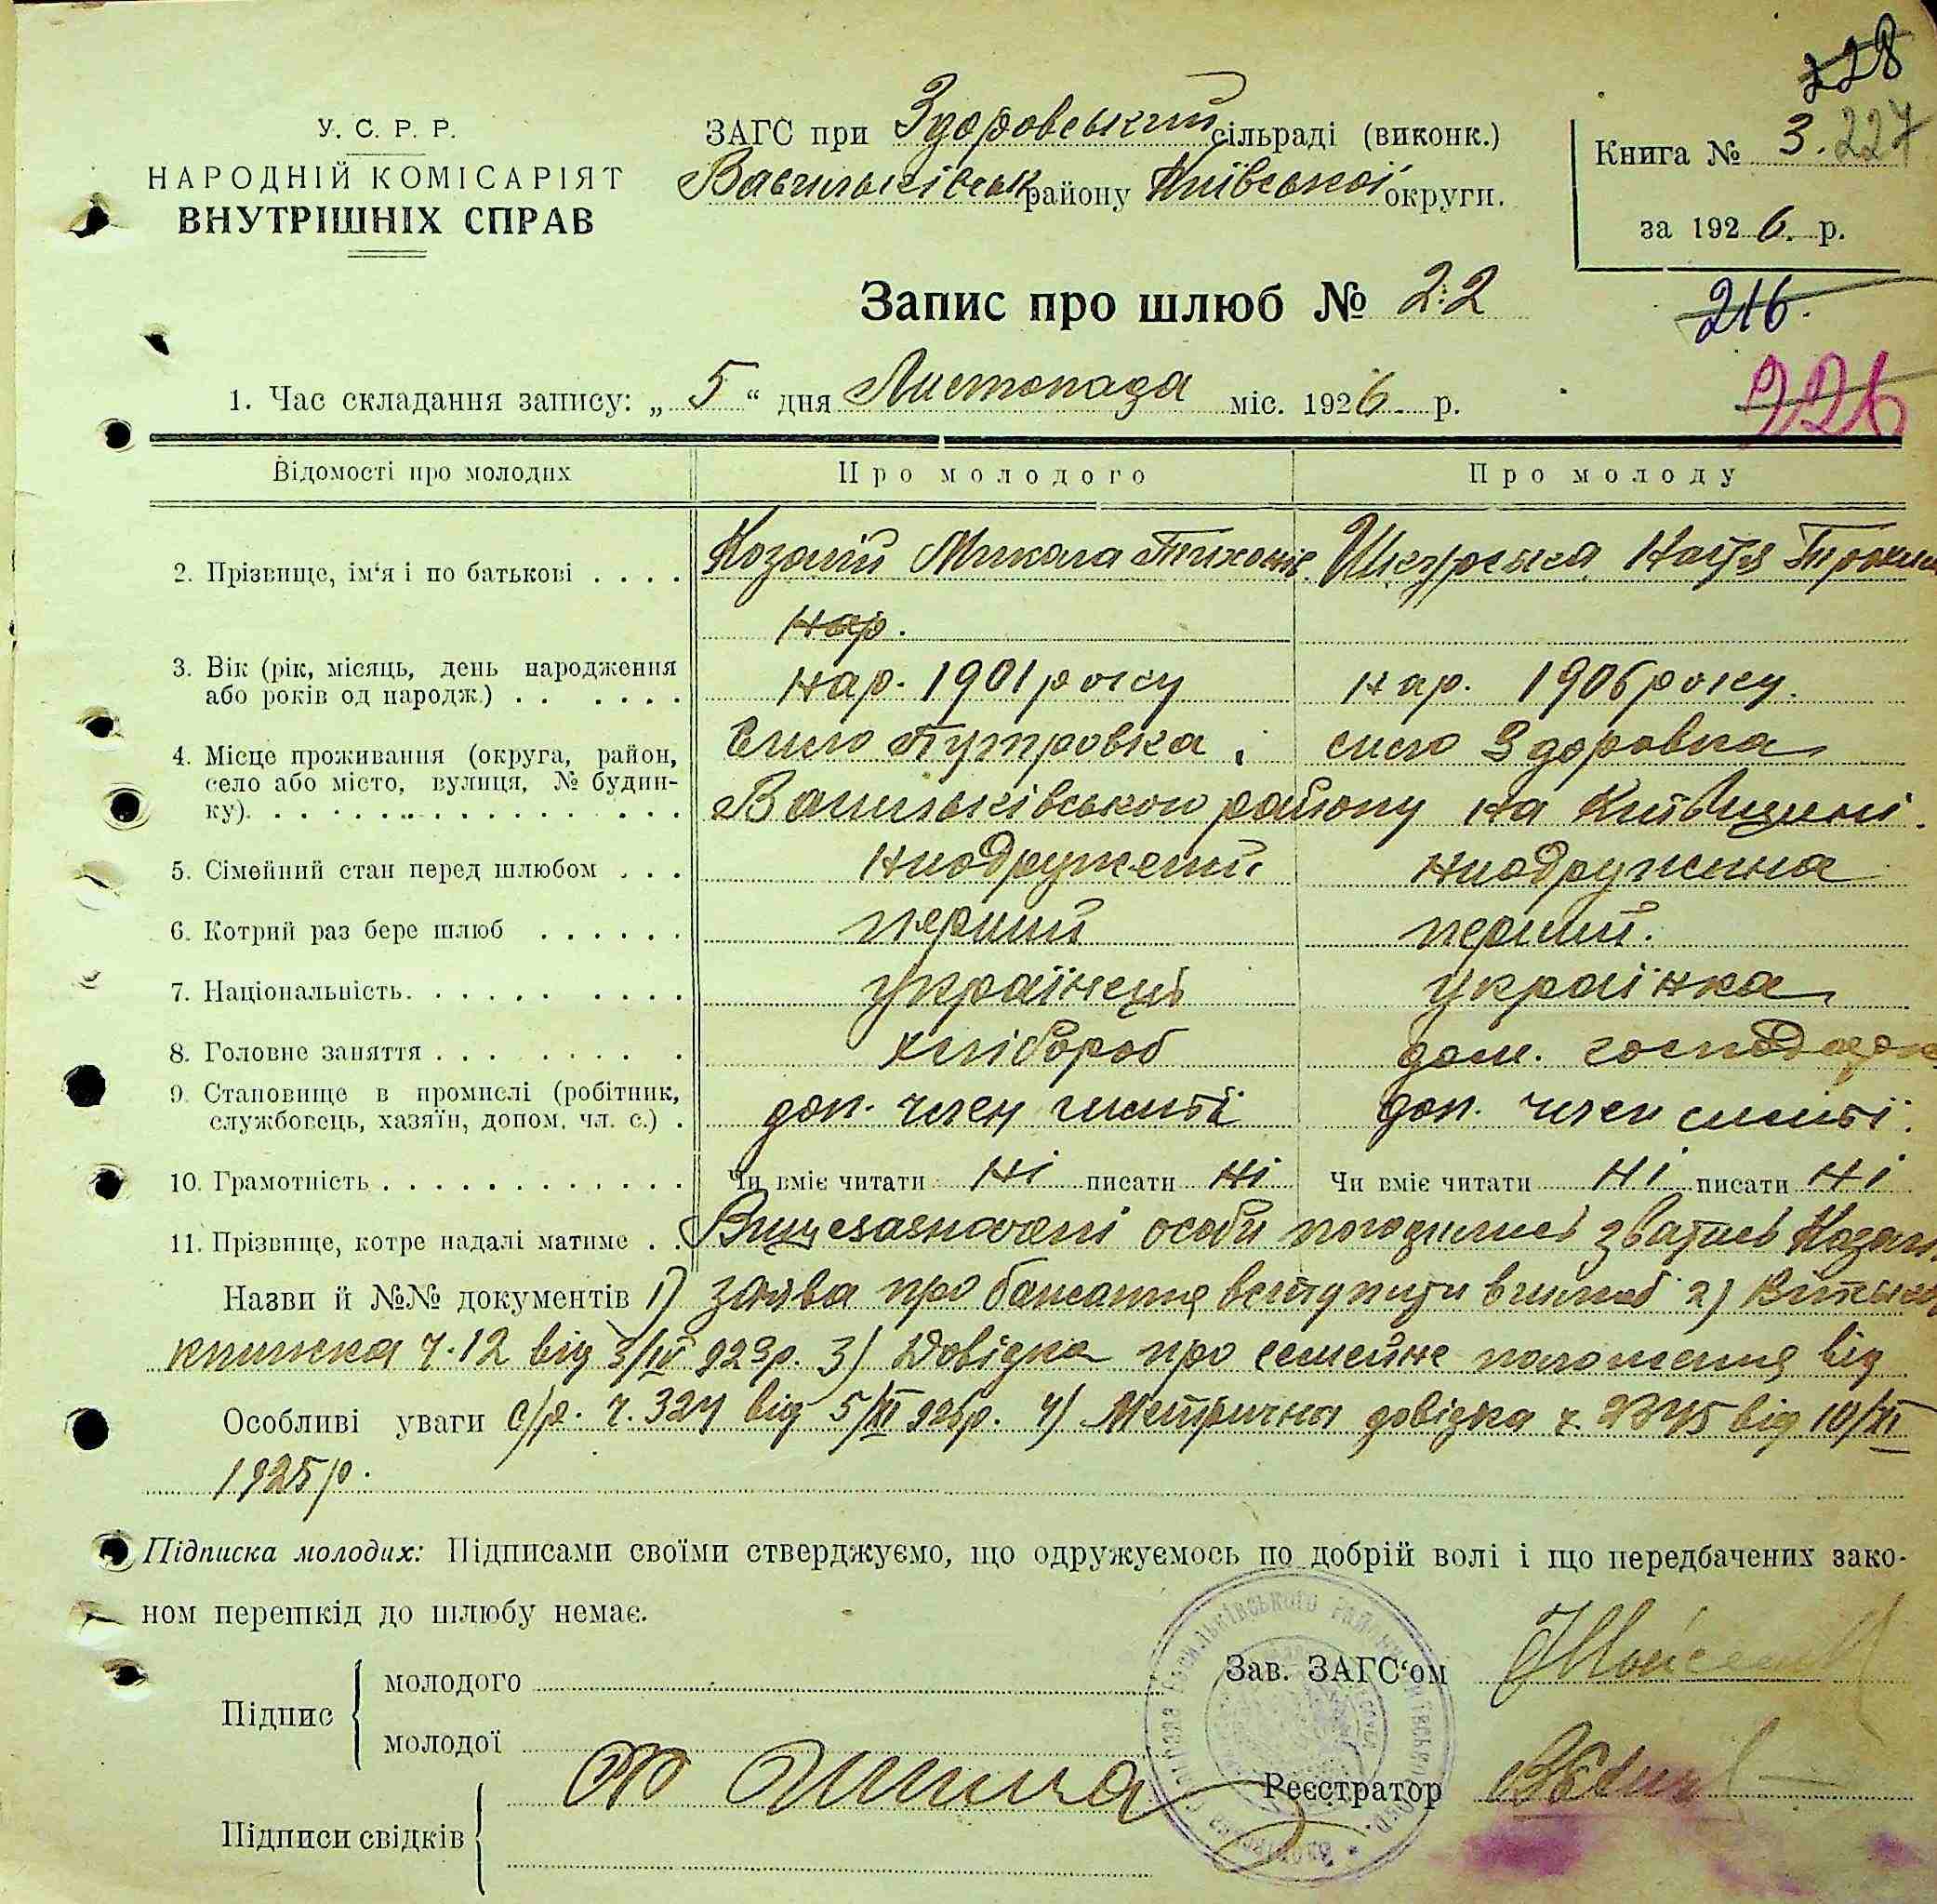 228
У. С. Р. Р.
НАРОДНІЙ КОМІСАРІЯТ
ВНУТРІШНІХ СПРАВ
ЗАГС при Здоровський сільраді (виконк.)
Васильківськ району Київської округи.
Книга № 3. 227
за 1926. р.
Запис про шлюб № 22
216.
226
1. Час складання запису: „5“ дня Листопада міс. 1926. р.
Відомості про молодих Про молодого Про молоду
2. Прізвище, ім‘я і по батькові . . . . Микола Тихонів.
Нар.
3. Вік (рік, місяць, день народження
або років од народж.) . . . . . . нар. 1901 року нар. 1906 року.
4. Місце проживання (округа, район, Село Путровка, село Здоровка
село або місто, вулиця, № будин-
ку). Васильківського району на Київщині.
5. Сімейний стан перед шлюбом . . .
6. Котрий раз бере шлюб . . . . . . перший перший.
7. Національність. . . . . . . . . . українець українка
8. Головне заняття . . . . . . . . хлібороб дом.
9. Становище в промислі (робітник,
службовець, хазяїн, допом. чл. с.) . доп. член сім'ї доп. член сім'ї.
10. Грамотність . . . . . . . . . . . . . Чи вміє читати Ні писати Ні Чи вміє читати Ні писати Ні
11. Прізвище, котре надалі матиме . . особи погодились зватись
Назви й №№ документів 1) заява про бажання вступити в шлюб 2)
книжка ч. 12 від 3/IV 923р. 3) Довідка про семейне положення від
Особливі уваги с/р. ч. 324 від 5/XI 926р. 4) Метрична довідка від 10/XI
1925 р.
Підписка молодих: Підписами своїми стверджуємо, що одружуємось по добрій волі і що передбачених зако-
ном перешкід до шлюбу немає.
Підпис
молодого
молодої
Зав. ЗАГС‘ом
Реєстратор
Підписи свідків